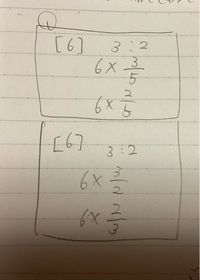 ①
[6] 3:2
6× 3/5
6× 2/5
[6] 3:2
6× 3/2
6× 2/3